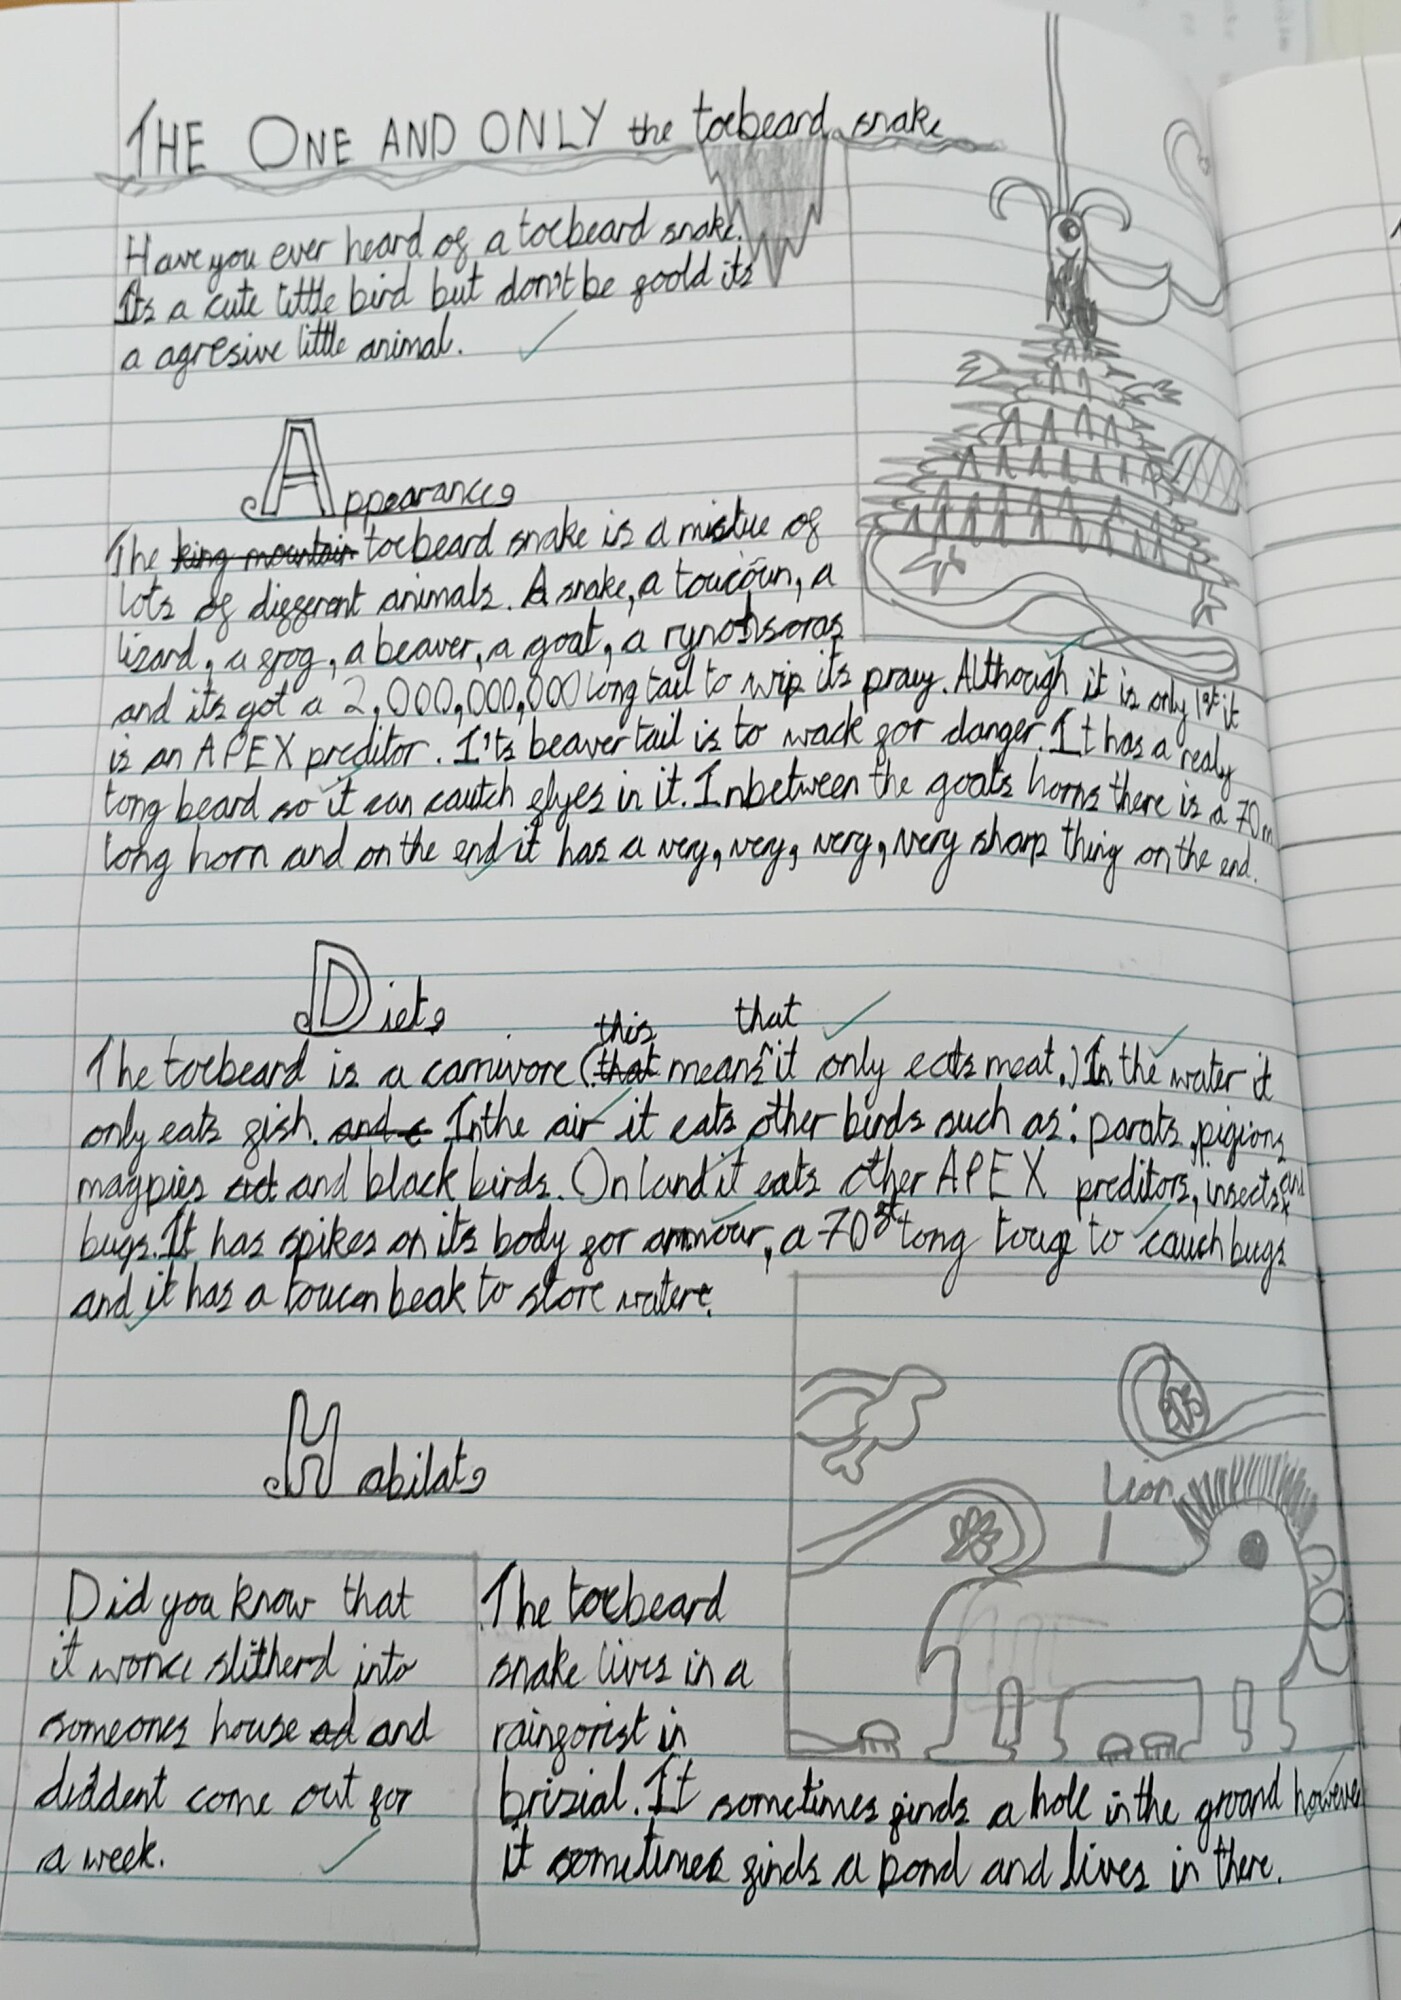 THE ONE AND ONLY the toebeard snake
Have you ever heard of a toebeard snake.
Its a cute little bird but don't be foold its
a agresive little animal.
Appearance
The king mountain toebeard snake is a mixtue of
lots of different animals. A snake, a toucoun, a
lizard, a frog, a beaver, a goat, a rynotisoras
and its got a 2,000,000,000 long tail to wip its prawy. Although it is only 1ft it
is an APEX preditor. I'ts beaver tail is to wack for danger. It has a realy
long beard so it can cautch flyes in it. Inbetween the goats horns there is a 70m
long horn and on the end it has a very, very, very, very sharp thing on the end.
Diet
this that
The toebeard is a carnivore (that means it only eats meat.) In the water it
only eats fish. and In the air it eats other birds such as: parats, pigions
magpies and black birds. On land it eats other APEX preditors, insects and
bugs. It has spikes on its body for armour, a 70ft long toug to cauch bugs
and it has a toucan beak to store water.
Habitat
Lion
Did you know that
it wonce slitherd into
someones house ad and
diddent come out for
a week.
The toebeard
snake lives in a
rainforist in
brizial. It sometimes finds a hole in the groand however
it sometimes finds a pond and lives in there.